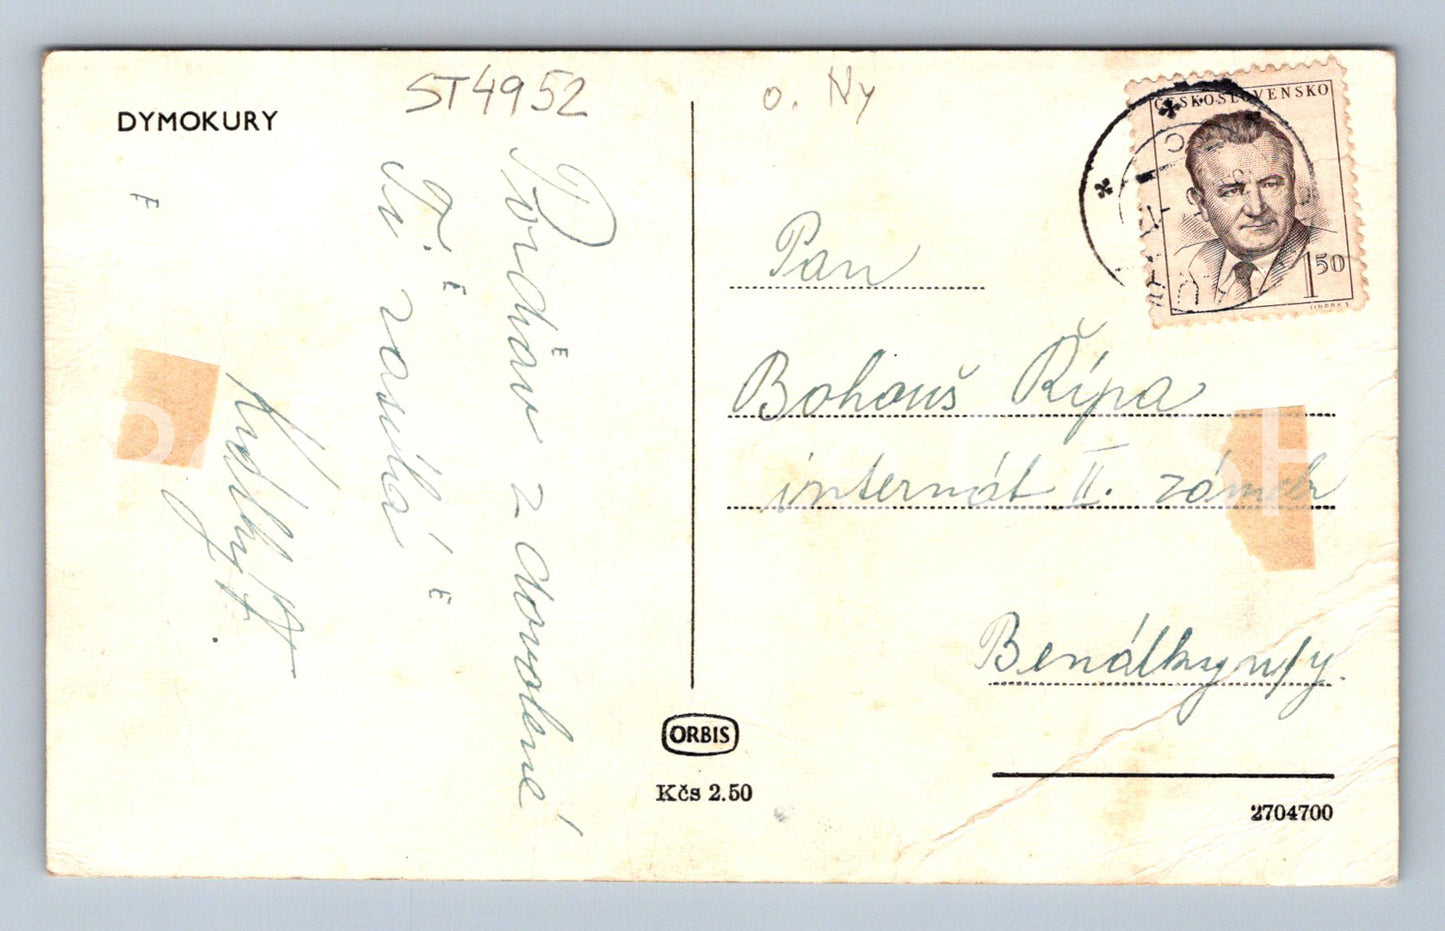 DYMOKURY
ST4952
o. Ny
F
Pozdrav z dovolené
Ti zasílá
E
E
E
ČESKOSLOVENSKO
1 50
Pan
Bohouš Řípa
internát II. zámek
Benátky n/J.
ORBIS
Kčs 2.50
2704700